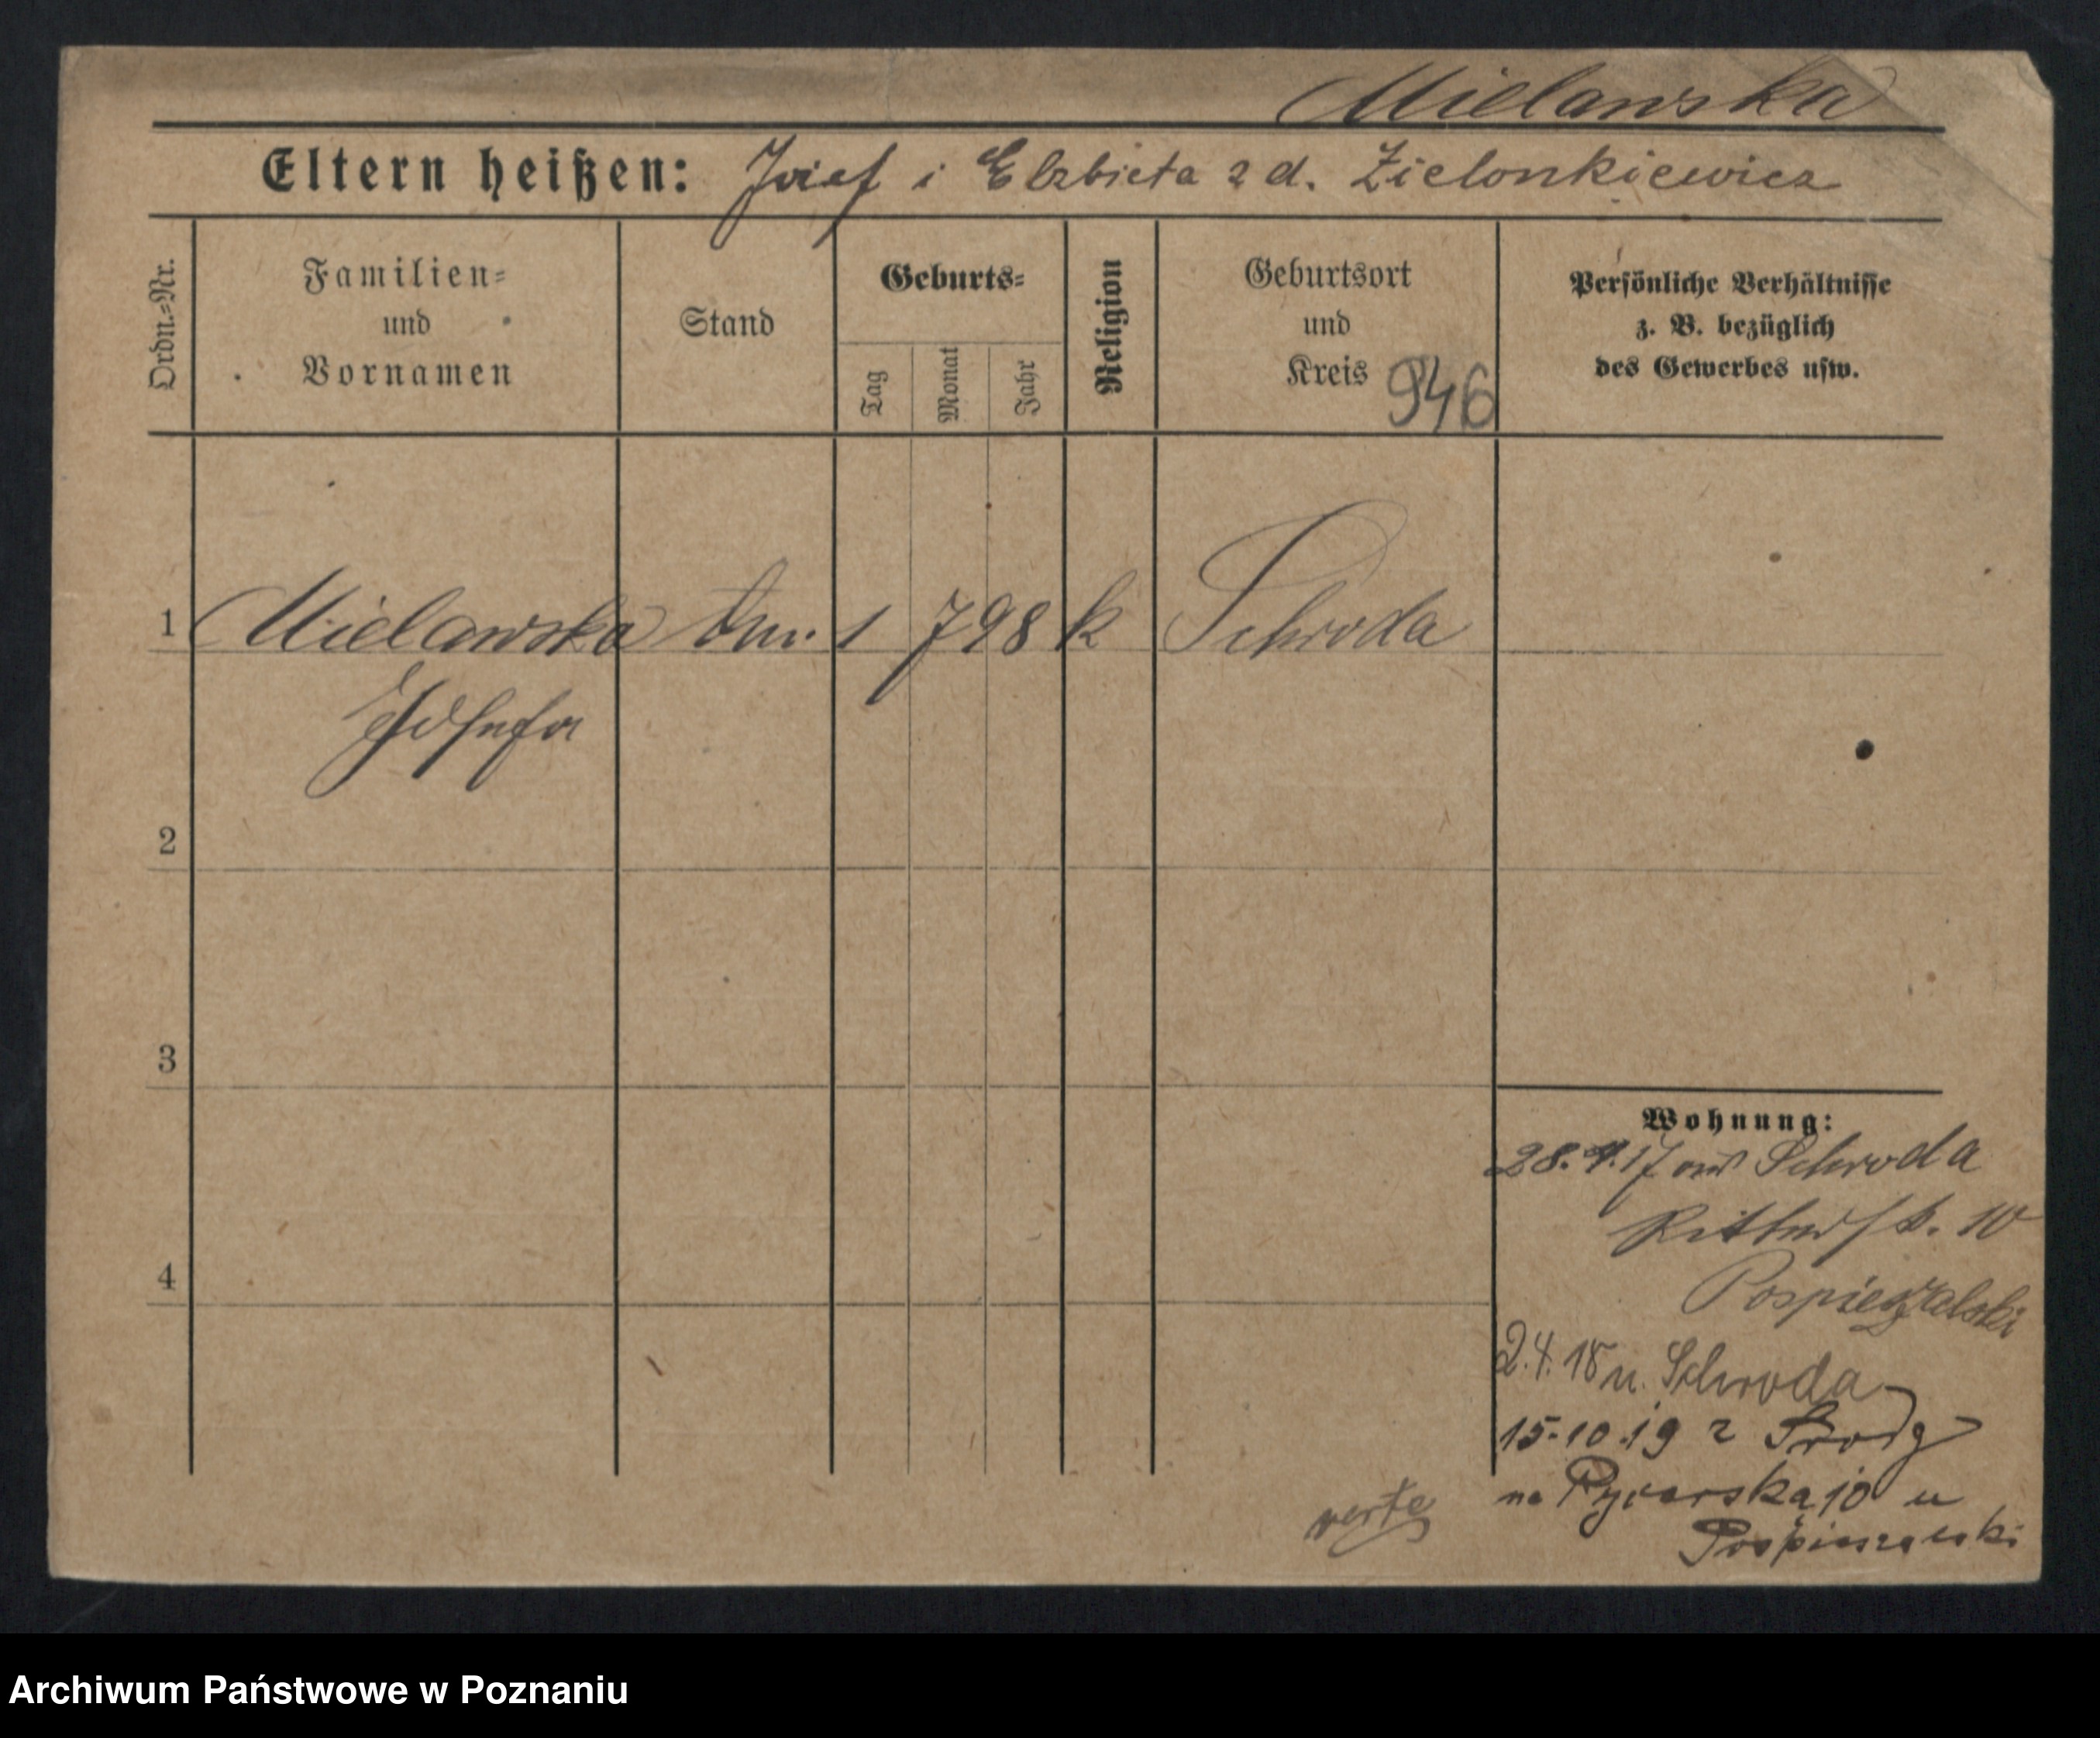 Mielawska
Eltern heißen: Josef i Elzbieta z d. Zielonkiewicz
Ordn.=Nr.
Familien=
und
Vornamen
Stand
Geburts=
Tag
Monat
Jahr
Religion
Geburtsort
und
Kreis 946
Persönliche Verhältnisse
z. B. bezüglich
des Gewerbes usw.
1 Mielawska 1 7 98 k Schroda
Josefa
2
3
4
Wohnung:
28.9.17 aus Schroda
Ritterstr. 10
Pospieszalski
2.4.18 n. Schroda
15.10.19 z Środy
na Rycarska 10 u
Pospieszalski
verte
Archiwum Państwowe w Poznaniu